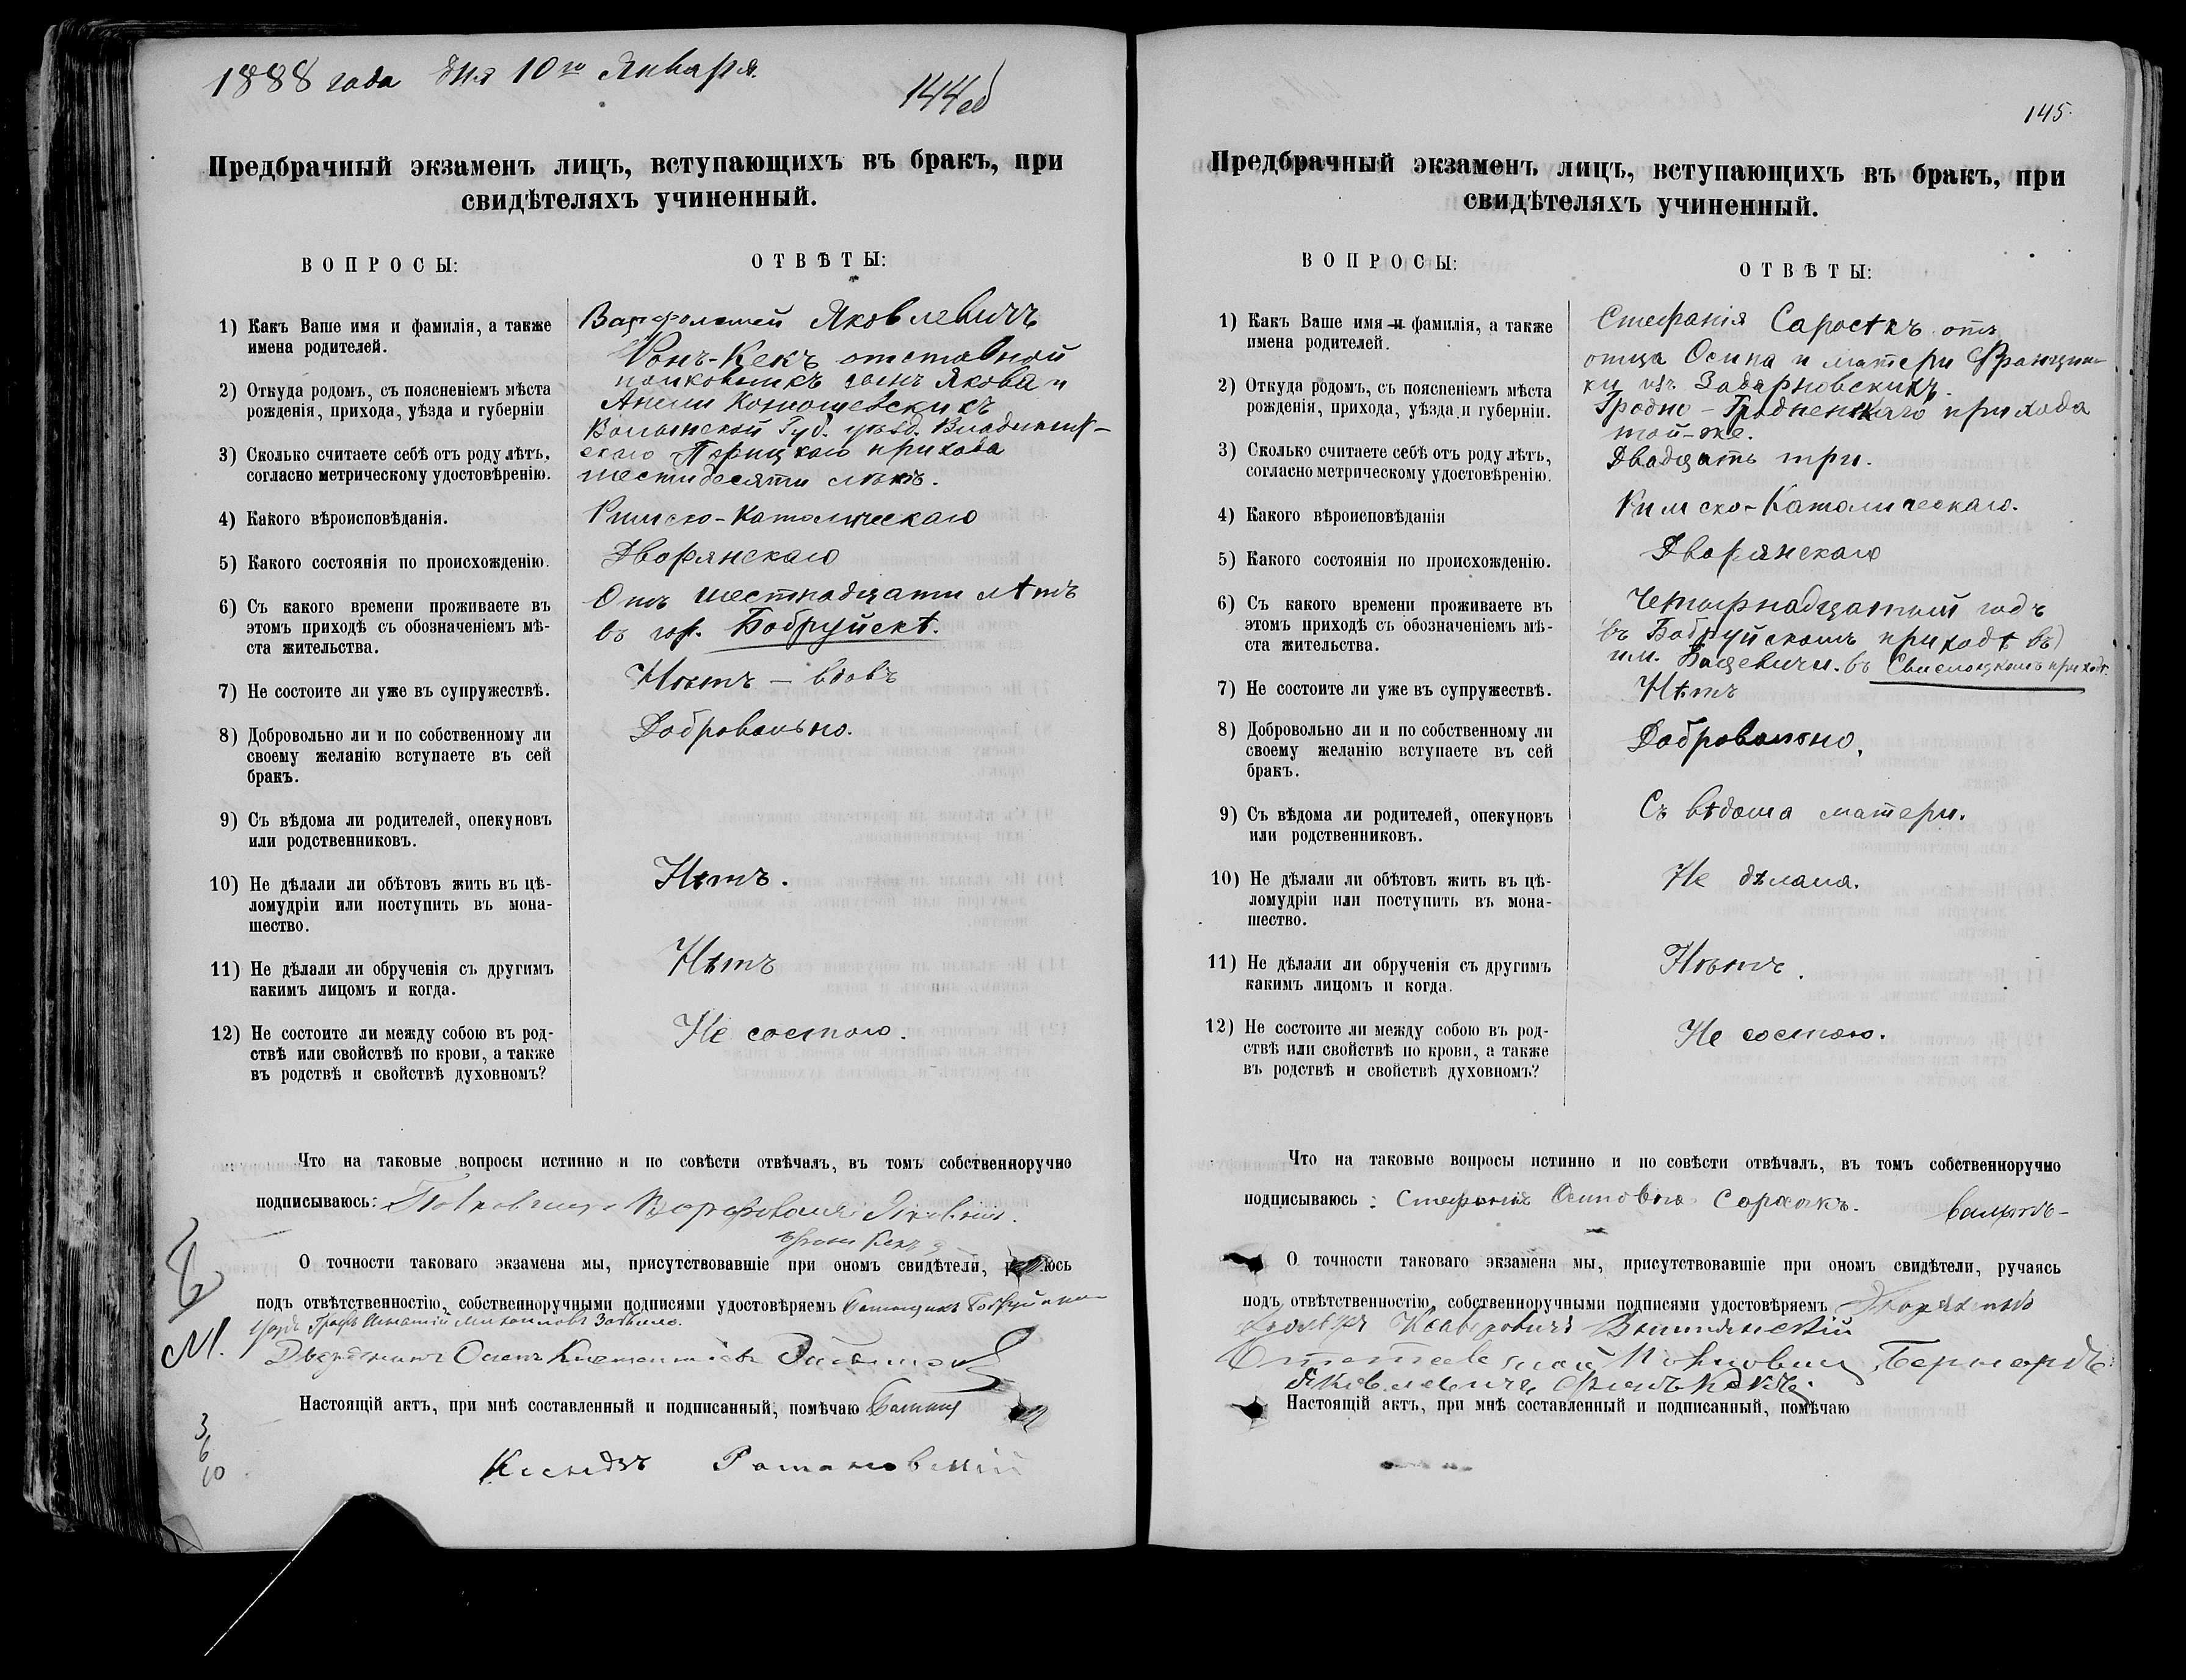 1888 года дня 10го Января.
144 об
Предбрачный экзаменъ лицъ, вступающихъ въ бракъ, при
свидѣтеляхъ учиненный.
ВОПРОСЫ:
ОТВѢТЫ:
1) Какъ Ваше имя и фамилія, а также
имена родителей.
2) Откуда родомъ, съ поясненіемъ мѣста
рожденія, прихода, уѣзда и губерніи
3) Сколько считаете себѣ отъ роду лѣтъ,
согласно метрическому удостовѣренію.
Варфоломей Яковлевичъ
Фонъ-Кекъ отставной
полковникъ сынъ Якова и
Анели
Волынской Губ. уѣзд. Владимир-
скаго Порицкаго прихода
шестидесяти лѣтъ.
4) Какого вѣроисповѣданія.
Римско-Католическаго
5) Какого состоянія по происхожденію.
Дворянскаго
6) Съ какого времени проживаете въ
этомъ приходѣ съ обозначеніемъ мѣ-
ста жительства.
Отъ шестнадцати лѣтъ
въ гор. Бобруйскѣ.
7) Не состоите ли уже въ супружествѣ.
Нѣтъ – вдовъ
8) Добровольно ли и по собственному ли
своему желанію вступаете въ сей
бракъ.
Добровольно.
9) Съ вѣдома ли родителей, опекуновъ
или родственниковъ.
10) Не дѣлали ли обѣтовъ жить въ цѣ-
ломудріи или поступить въ мона-
шество.
Нѣтъ.
11) Не дѣлали ли обрученія съ другимъ
какимъ лицомъ и когда.
Нѣтъ
12) Не состоите ли между собою въ род-
ствѣ или свойствѣ по крови, а также
въ родствѣ и свойствѣ духовномъ?
Не состою.
Что на таковые вопросы истинно и по совѣсти отвѣчалъ, въ томъ собственноручно
подписываюсь: Полковникъ Варфоломей Яковлев.
Фонъ Кекъ
О точности таковаго экзамена мы, присутствовавшіе при ономъ свидѣтели, юсь
подъ отвѣтственностію, собственноручными подписями удостовѣряемъ
Графъ Игнатій Михаиловъ Забѣлло.
Дворянинъ Осипъ
М.
Настоящій актъ, при мнѣ составленный и подписанный, помѣчаю
3
6
10
Ксендзъ Романовскій
145.
Предбрачный экзаменъ лицъ, вступающихъ въ бракъ, при
свидѣтеляхъ учиненный.
ВОПРОСЫ:
ОТВѢТЫ:
1) Какъ Ваше имя и фамилія, а также
имена родителей.
2) Откуда родомъ, съ поясненіемъ мѣста
рожденія, прихода, уѣзда и губерніи.
3) Сколько считаете себѣ отъ роду лѣтъ,
согласно метрическому удостовѣренію.
Стефанія Саросѣкъ отъ
отца Осипа и матери Франциш-
ки изъ
Гродно – Гродненскаго прихода
той-же.
Двадцать три.
4) Какого вѣроисповѣданія
Римско-Католическаго.
5) Какого состоянія по происхожденію.
Дворянскаго
6) Съ какого времени проживаете въ
этомъ приходѣ съ обозначеніемъ мѣ-
ста жительства.
Четырнадцатый годъ
въ Бобруйскомъ приходѣ въ
им. Бацевичи. въ Свислоцкомъ приходѣ.
7) Не состоите ли уже въ супружествѣ.
Нѣтъ
8) Добровольно ли и по собственному ли
своему желанію вступаете въ сей
бракъ.
Добровольно.
9) Съ вѣдома ли родителей, опекуновъ
или родственниковъ.
Съ вѣдома матери.
10) Не дѣлали ли обѣтовъ жить въ цѣ-
ломудріи или поступить въ мона-
шество.
Не дѣлала.
11) Не дѣлали ли обрученія съ другимъ
какимъ лицомъ и когда.
Нѣтъ.
12) Не состоите ли между собою въ род-
ствѣ или свойствѣ по крови, а также
въ родствѣ и свойствѣ духовномъ?
Не состою.
Что на таковые вопросы истинно и по совѣсти отвѣчалъ, въ томъ собственноручно
подписываюсь: Стефанія Осиповна Саросѣкъ.
О точности таковаго экзамена мы, присутствовавшіе при ономъ свидѣтели, ручаясь
подъ отвѣтственностію собственноручными подписями удостовѣряемъ Дворянинъ
Ксаверовичъ
Отставной Бернардъ
Яковлевичъ Фонъ Кекъ
Настоящій актъ, при мнѣ составленный и подписанный, помѣчаю